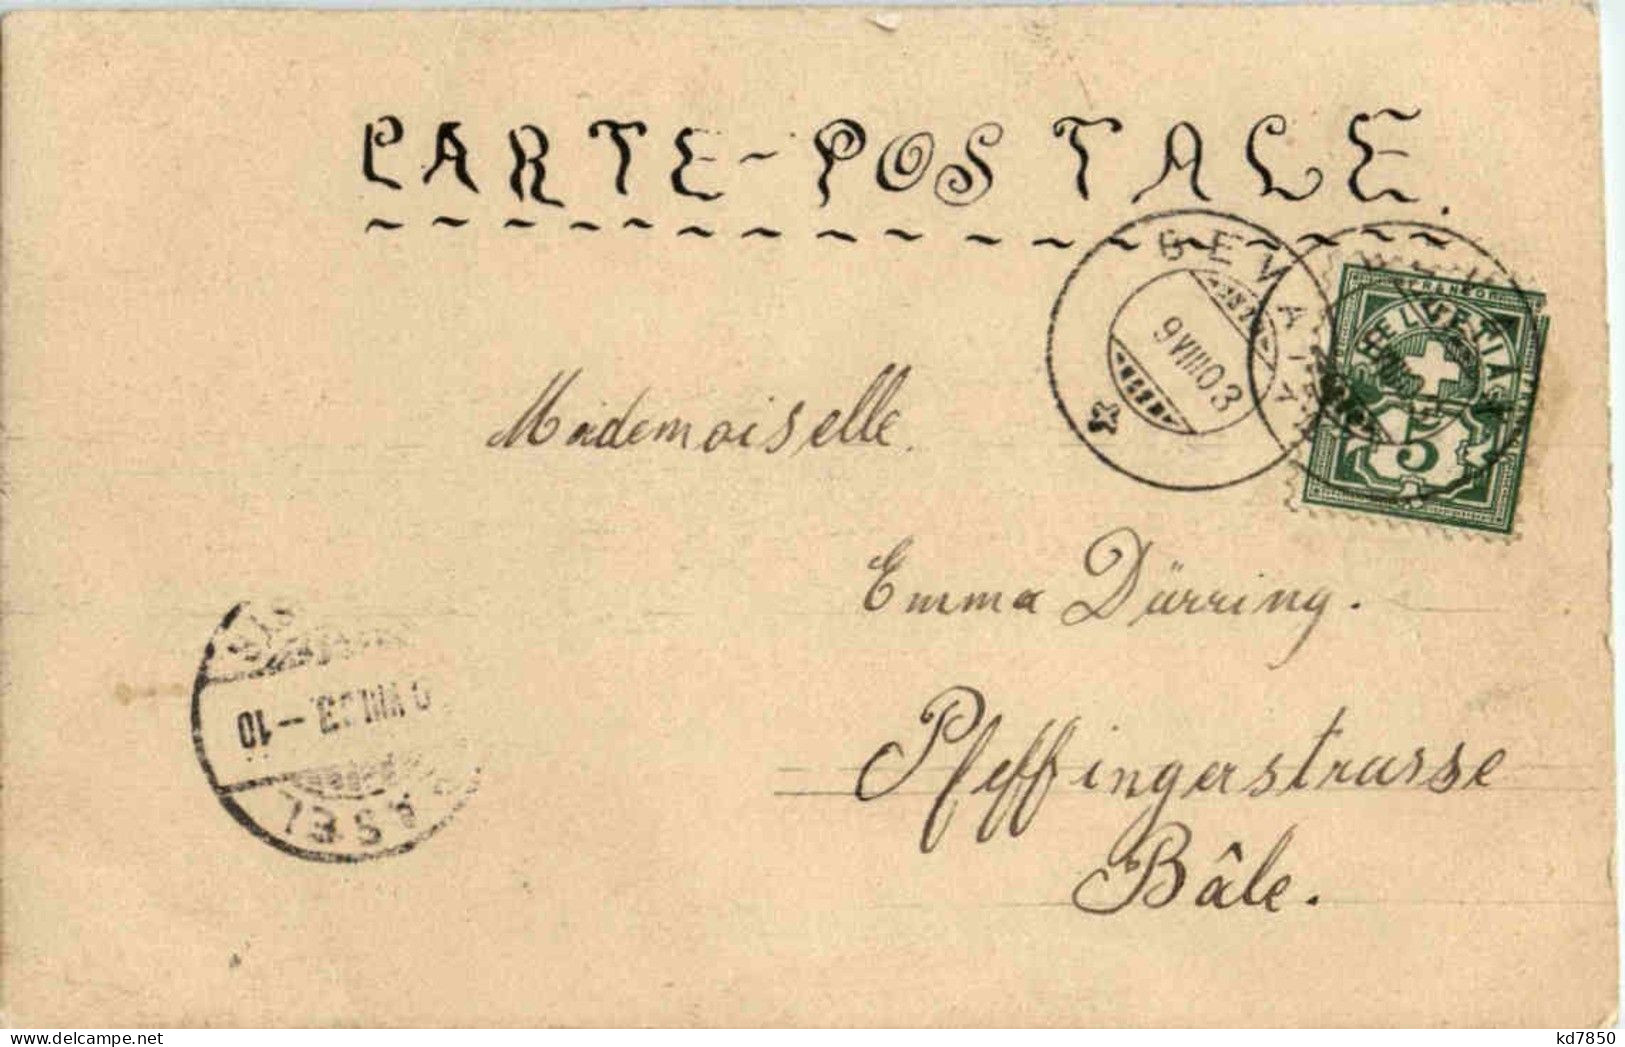 CARTE-POSTALE.
BEVAIX
9 VIII 03
FRANCO
HELVETIA
5
Mademoiselle.
Emma Dürring.
Pfeffingerstrasse
Bâle.
VIII.03.-10
BASEL
kd7850